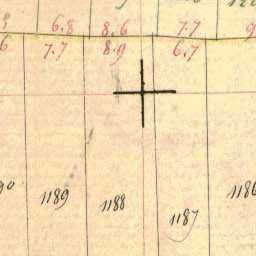 6.8 8.6 7.7
7.7 8.9 6.7
1189 1188 1187 1186